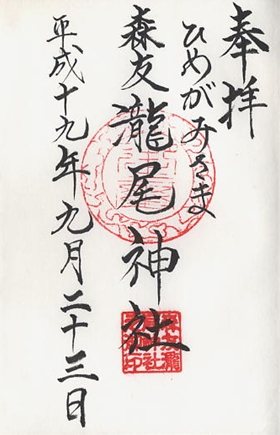 奉拝
ひめがみさま
森友瀧尾神社
平成十九年九月二十三日